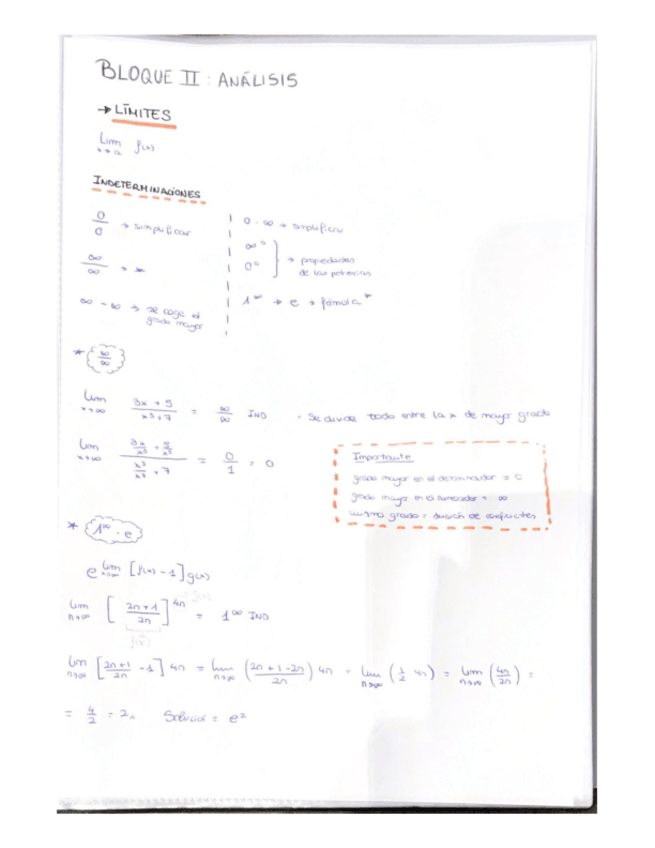 BLOQUE II : ANÁLISIS
→ LÍMITES
lim x→a f(x)
INDETERMINACIONES
0/0 → simplificar
∞/∞ → *
∞ - ∞ → se coge el grado mayor
0 · ∞ → simplificar
∞⁰
0⁰
→ propiedades de las potencias
1^∞ → e → fórmula *
* ∞/∞
lim x→∞ (3x + 5)/(x³ + 7) = ∞/∞ IND · Se divide todo entre la x de mayor grado
lim x→∞ (3x/x³ + 5/x³)/(x³/x³ + 7) = 0/1 = 0
Importante
grado mayor en el denominador = 0
grado mayor en el numerador = ∞
mismo grado = división de coeficientes
* 1^∞ - e
e lim n→∞ [f(x) - 1] g(x)
lim n→∞ [(2n+1)/2n]^4n = 1^∞ IND
lim n→∞ [(2n+1)/2n - 1] 4n = lim n→∞ ((2n+1-2n)/2n) 4n = lim n→∞ (1/2 4n) = lim n→∞ (4n/2n) =
= 4/2 = 2 Solución = e²